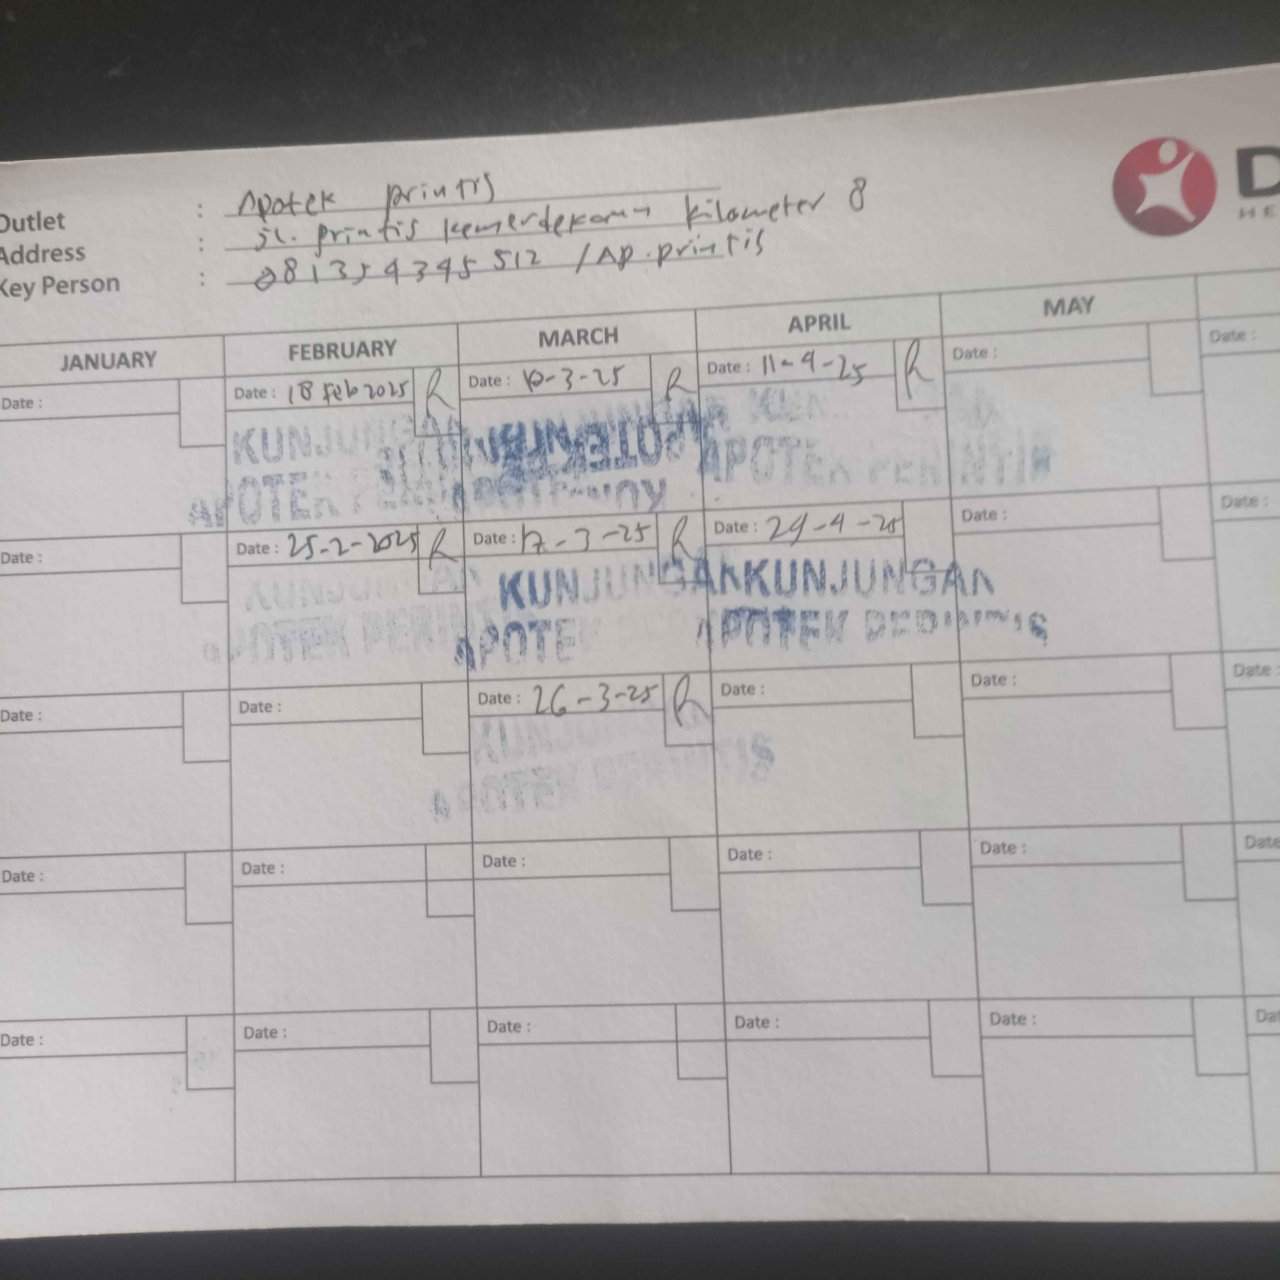 Outlet : Apotek printis
Address : jl. printis kemerdekaan kilometer 8
Key Person : 081354345512 / Ap. printis
D
HE
JANUARY FEBRUARY MARCH APRIL MAY
Date : Date : 18 Feb 2025 R Date : 10-3-25 R Date : 11-4-25 R Date : Date :
KUNJUNGAN
APOTEK APOTEK APOTEK PERINTIS
Date : Date : 25-2-2025 R Date : 17-3-25 R Date : 29-4-25 Date : Date :
KUNJUNGAN KUNJUNGAN
APOTEK PERINTIS APOTEK APOTEK PERINTIS
Date : Date : Date : 26-3-25 R Date : Date : Date :
KUNJUNGAN
APOTEK PERINTIS
Date : Date : Date : Date : Date : Date
Date : Date : Date : Date : Date : Dat